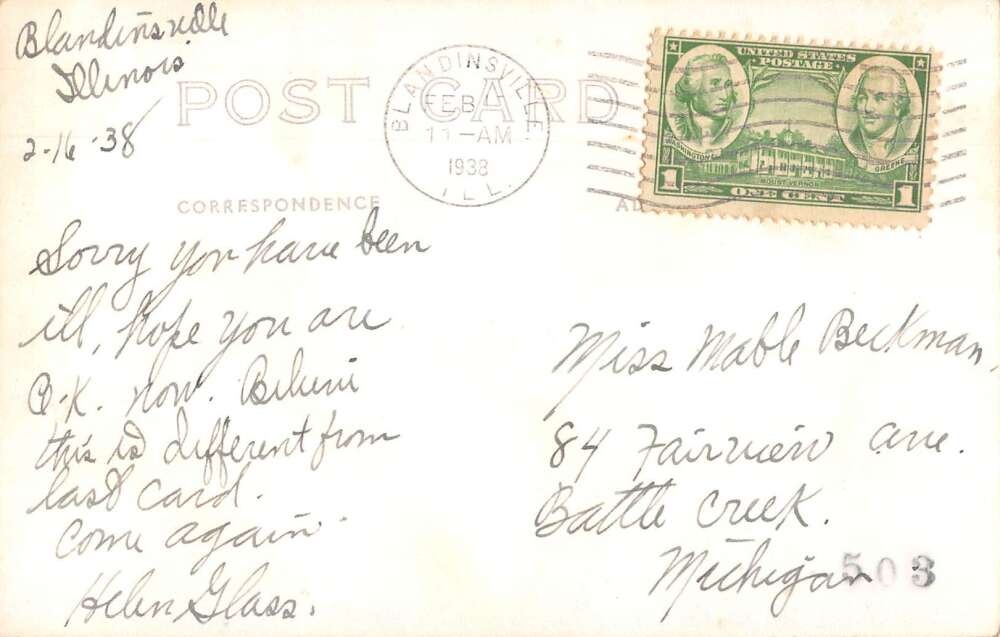 Blandinsville
Illinois
2-16-38
POST CARD
BLANDINSVILLE
FEB
11-AM
1938
ILL.
UNITED STATES
POSTAGE
WASHINGTON
GREENE
MOUNT VERNON
1 ONE CENT 1
CORRESPONDENCE
AD
Sorry you have been
ill, hope you are
O.K. now. Believe
this is different from
last card.
Come again.
Helen Glass.
Miss Mable Beckman,
84 Fairview Ave.
Battle Creek.
Michigan
503